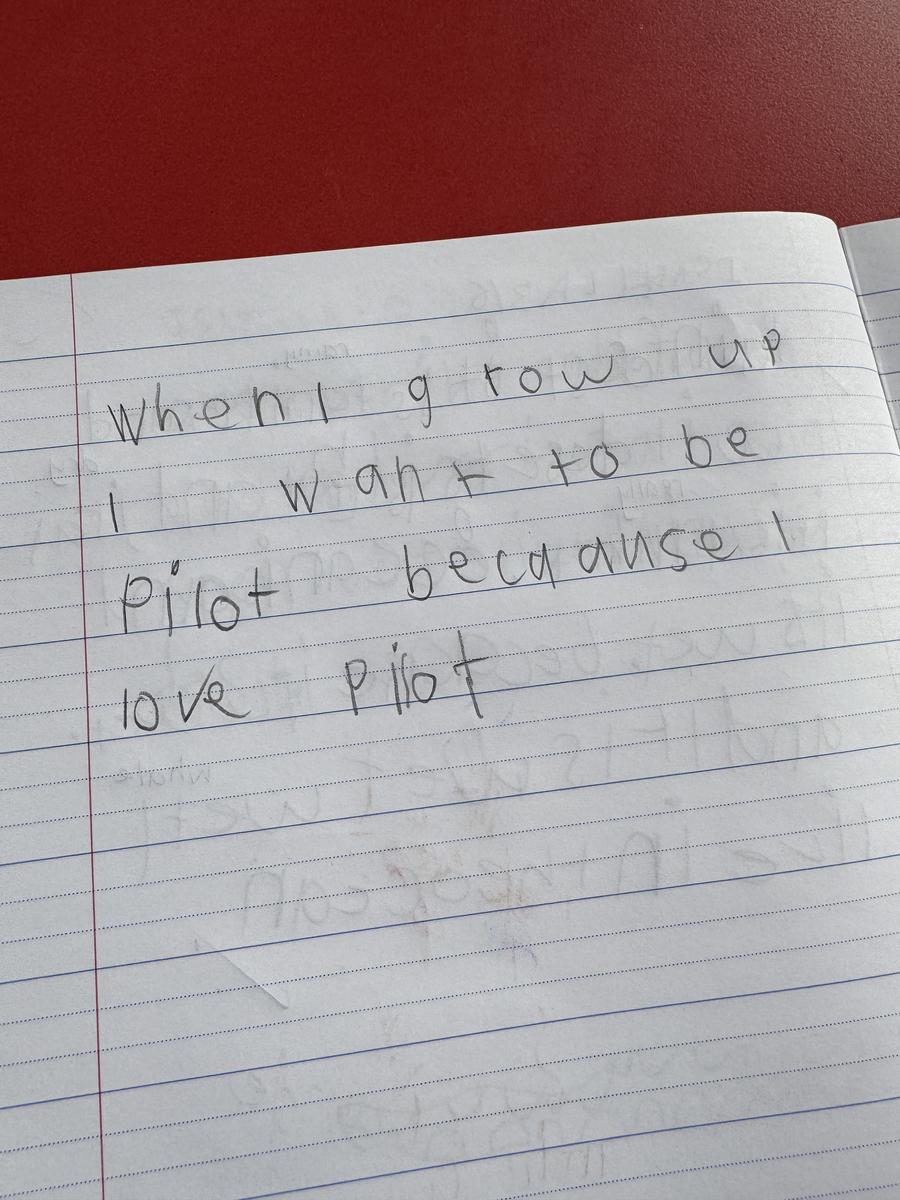 When I grow up
I want to be
Pilot becaause I
love Pilot